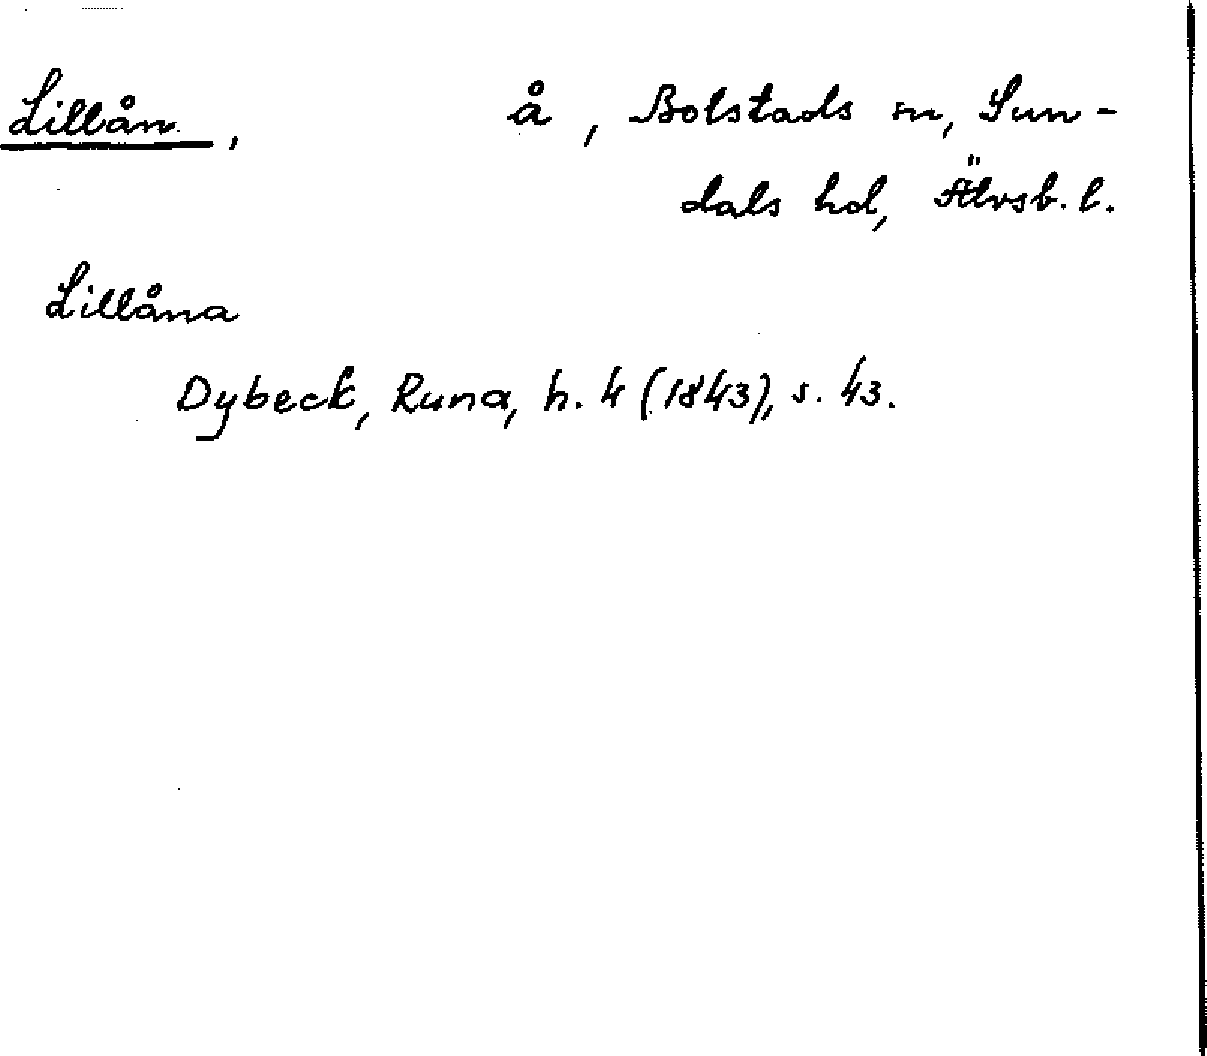 Lillån, å, Bolstads sn, Sun-
dals hd, Älvsb. l.
Lillåna
Dybeck, Runa, h. 4 (1843), s. 43.